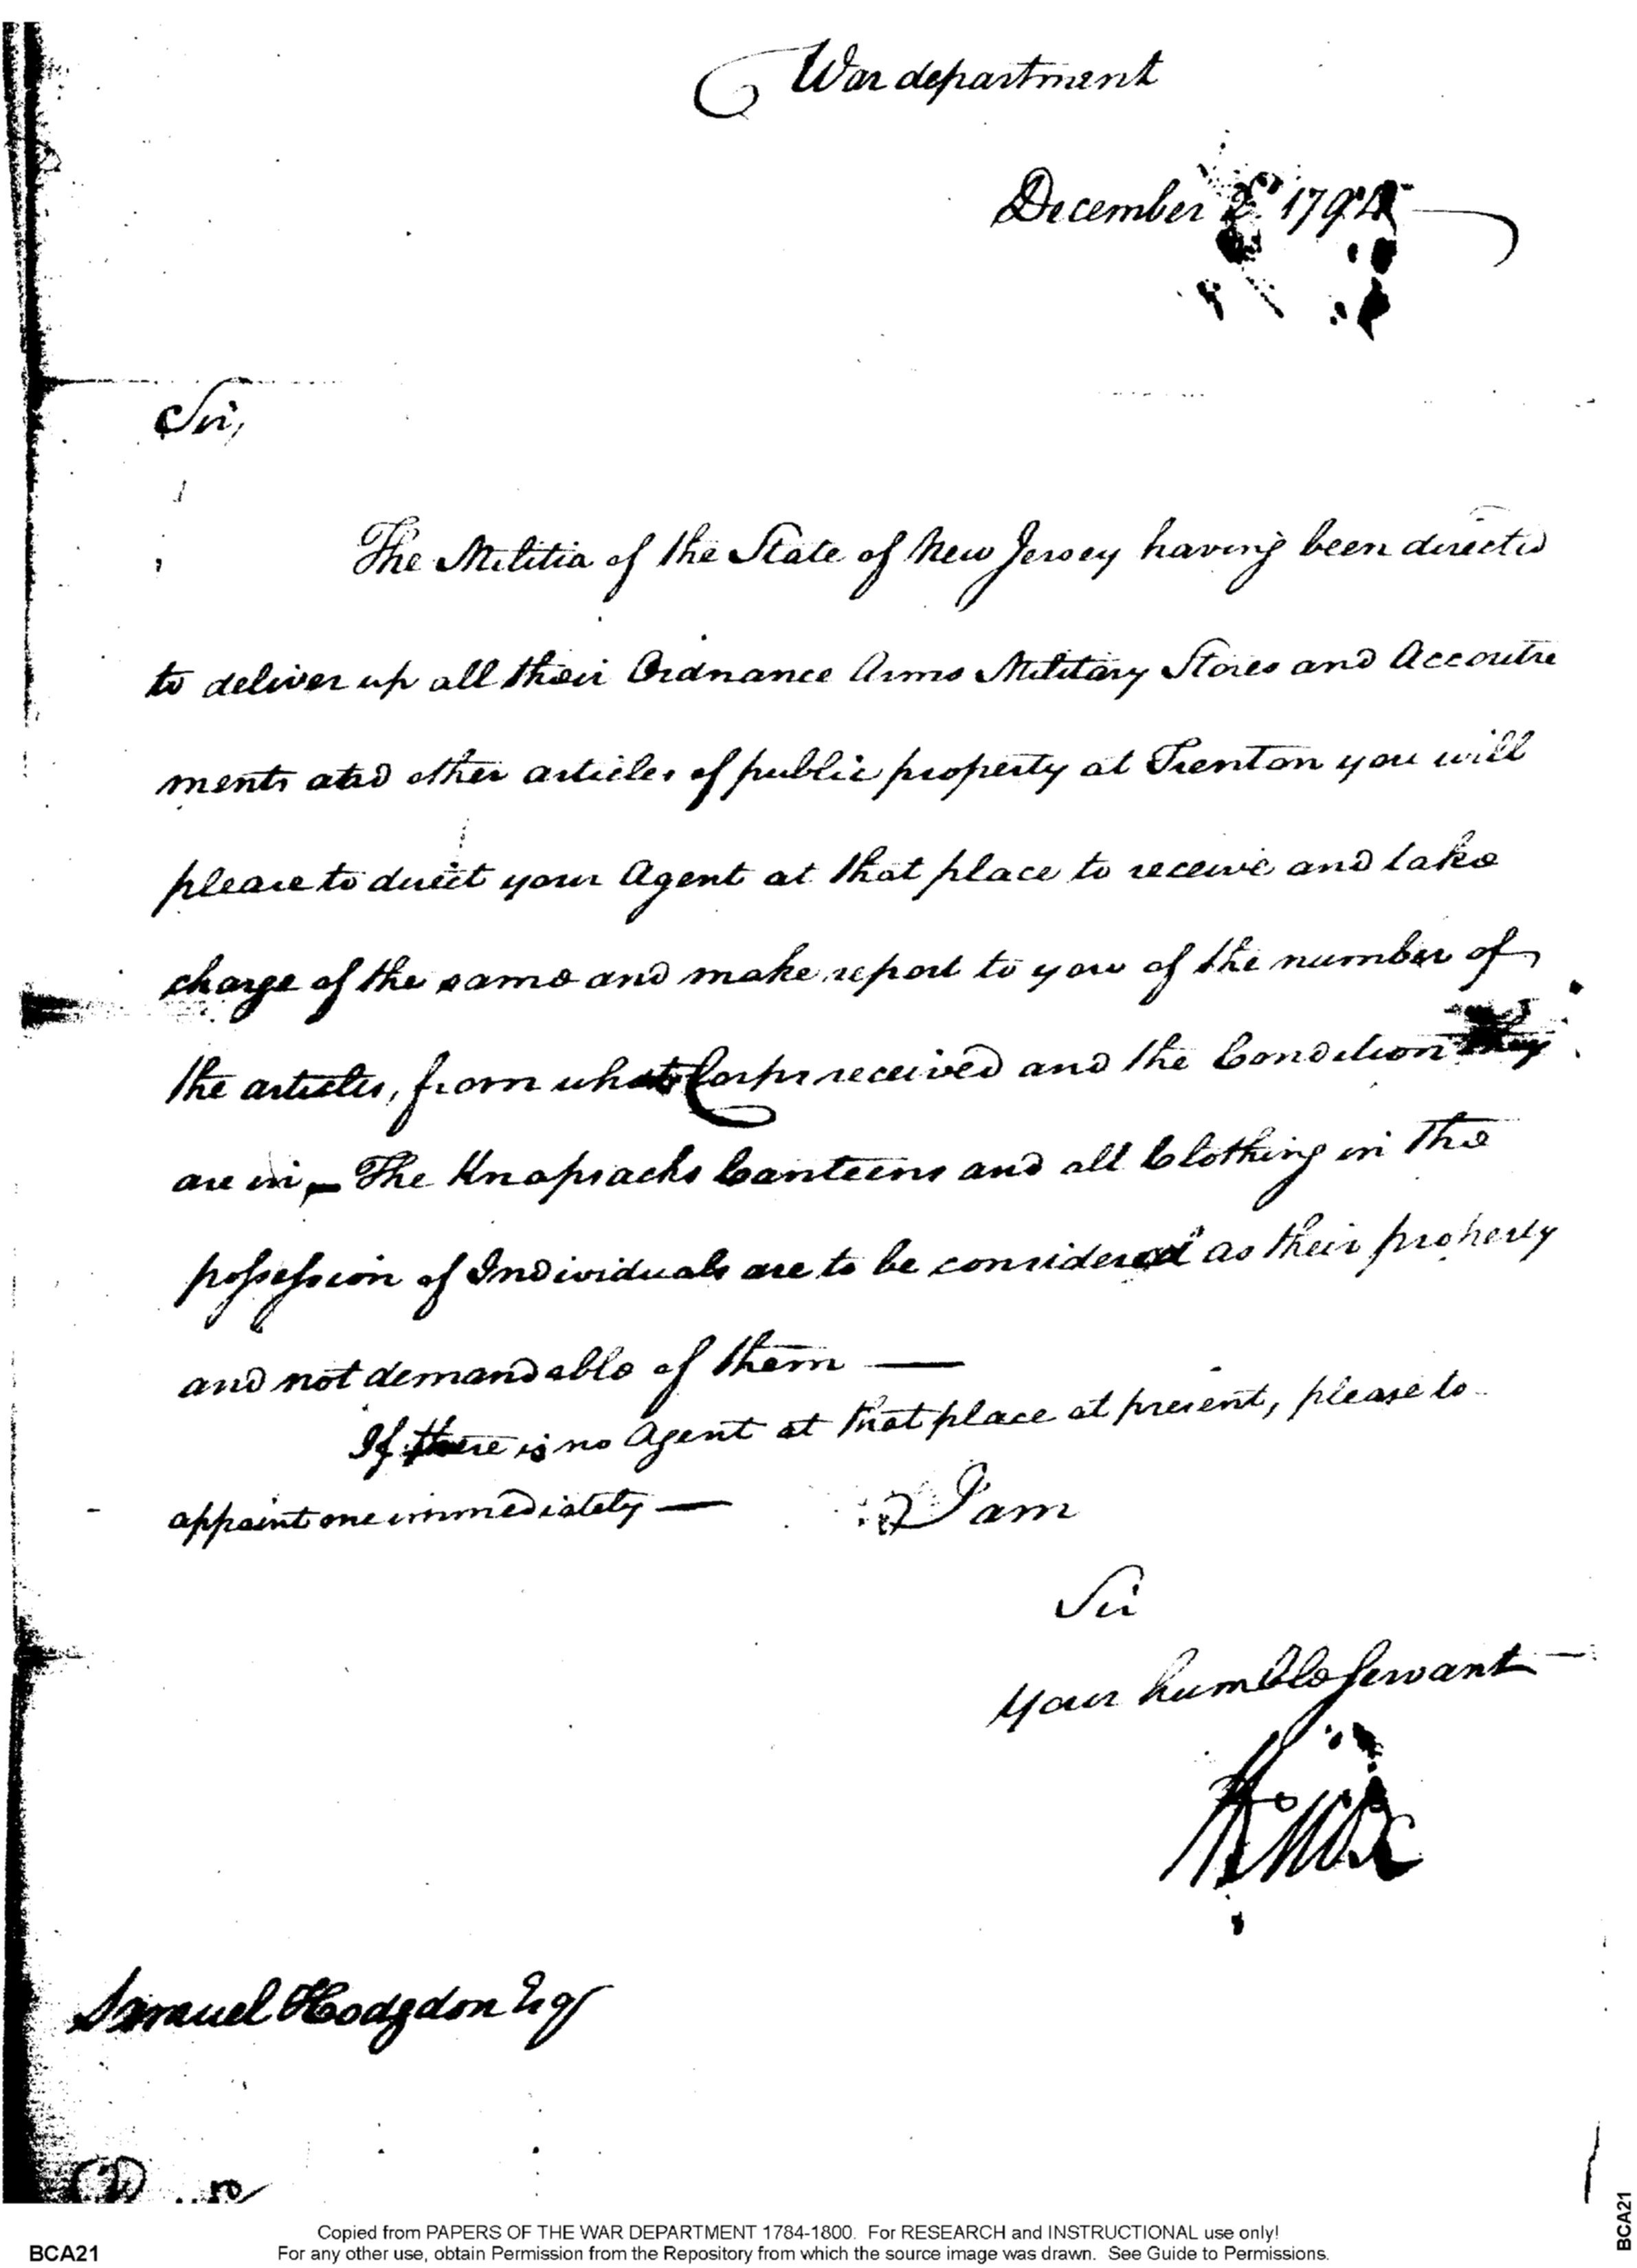 War department
December 2d. 1794
Sir,
The Militia of the State of New Jersey having been directed
to deliver up all their Ordnance Arms Military Stores and Accoutre
ments and other articles of public property at Trenton you will
please to direct your Agent at that place to receive and take
charge of the same and make report to you of the number of
the articles, from what Corps received and the Condition they
are in,— The Knapsacks Canteens and all Clothing in the
possession of Individuals are to be considered as their property
and not demandable of them —
If there is no Agent at that place at present, please to
appoint one immediately — I am
Sir
Your humble Servant
HKnox
Samuel Hodgdon Esqr
Copied from PAPERS OF THE WAR DEPARTMENT 1784-1800. For RESEARCH and INSTRUCTIONAL use only!
BCA21 For any other use, obtain Permission from the Repository from which the source image was drawn. See Guide to Permissions.
BCA21